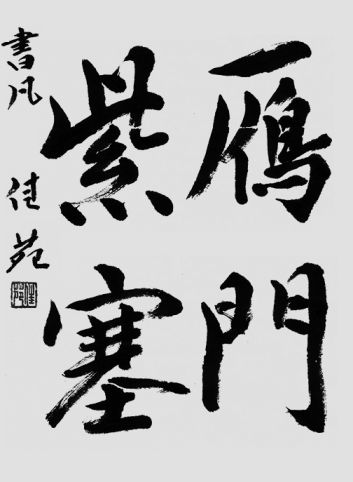 鴈門
紫塞
書凡 佳苑